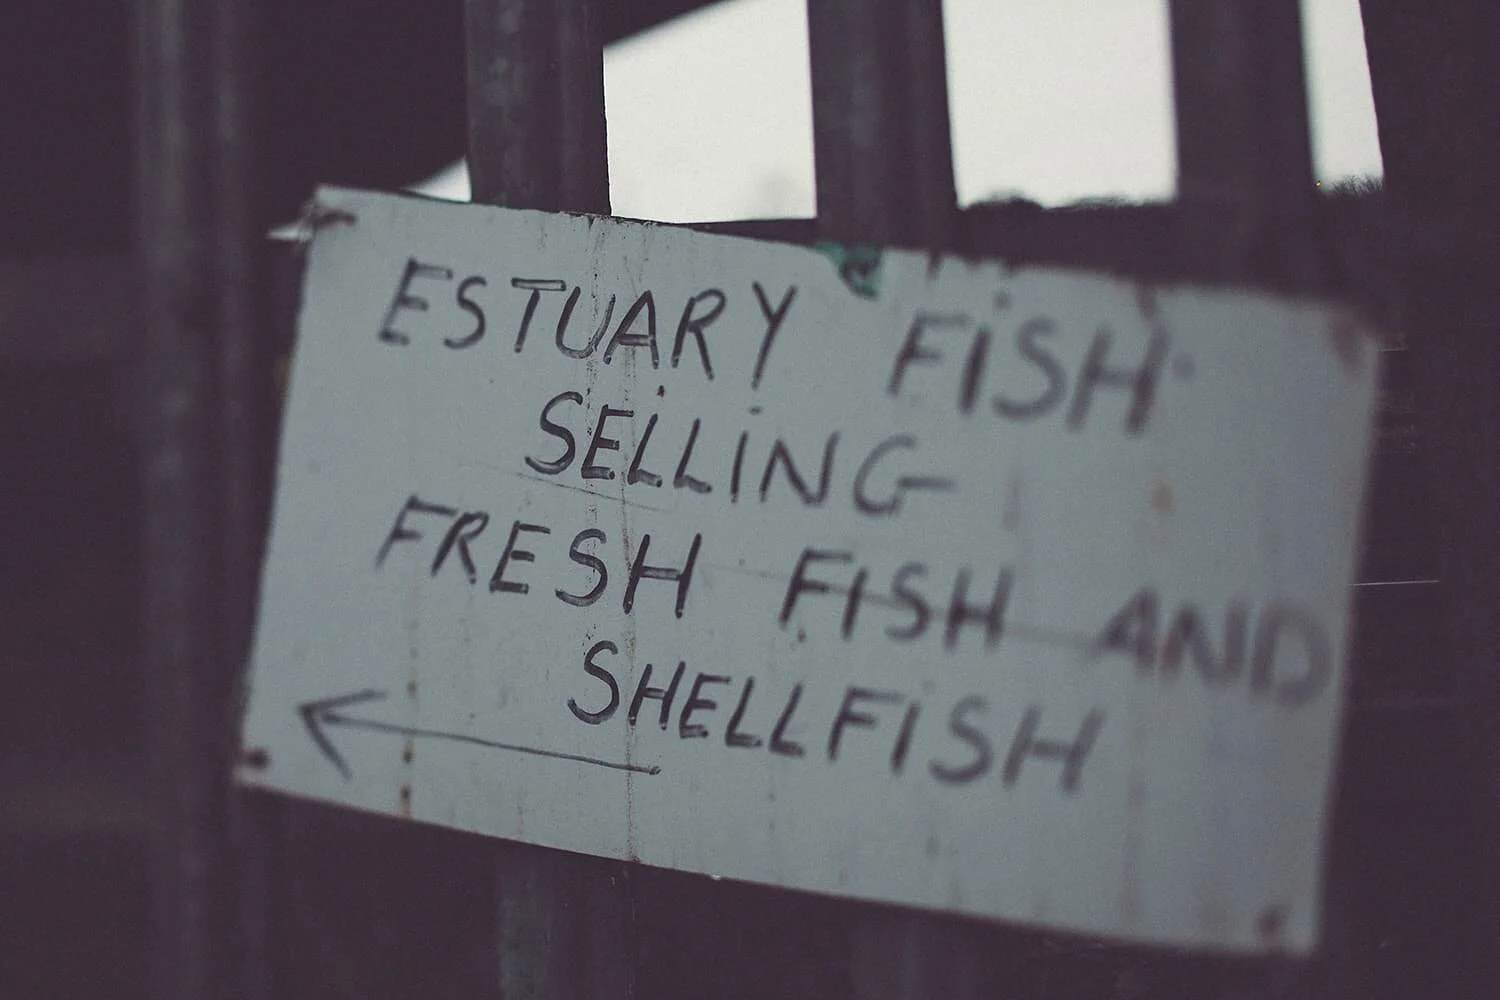 ESTUARY FISH
SELLING
FRESH FISH AND
SHELLFISH